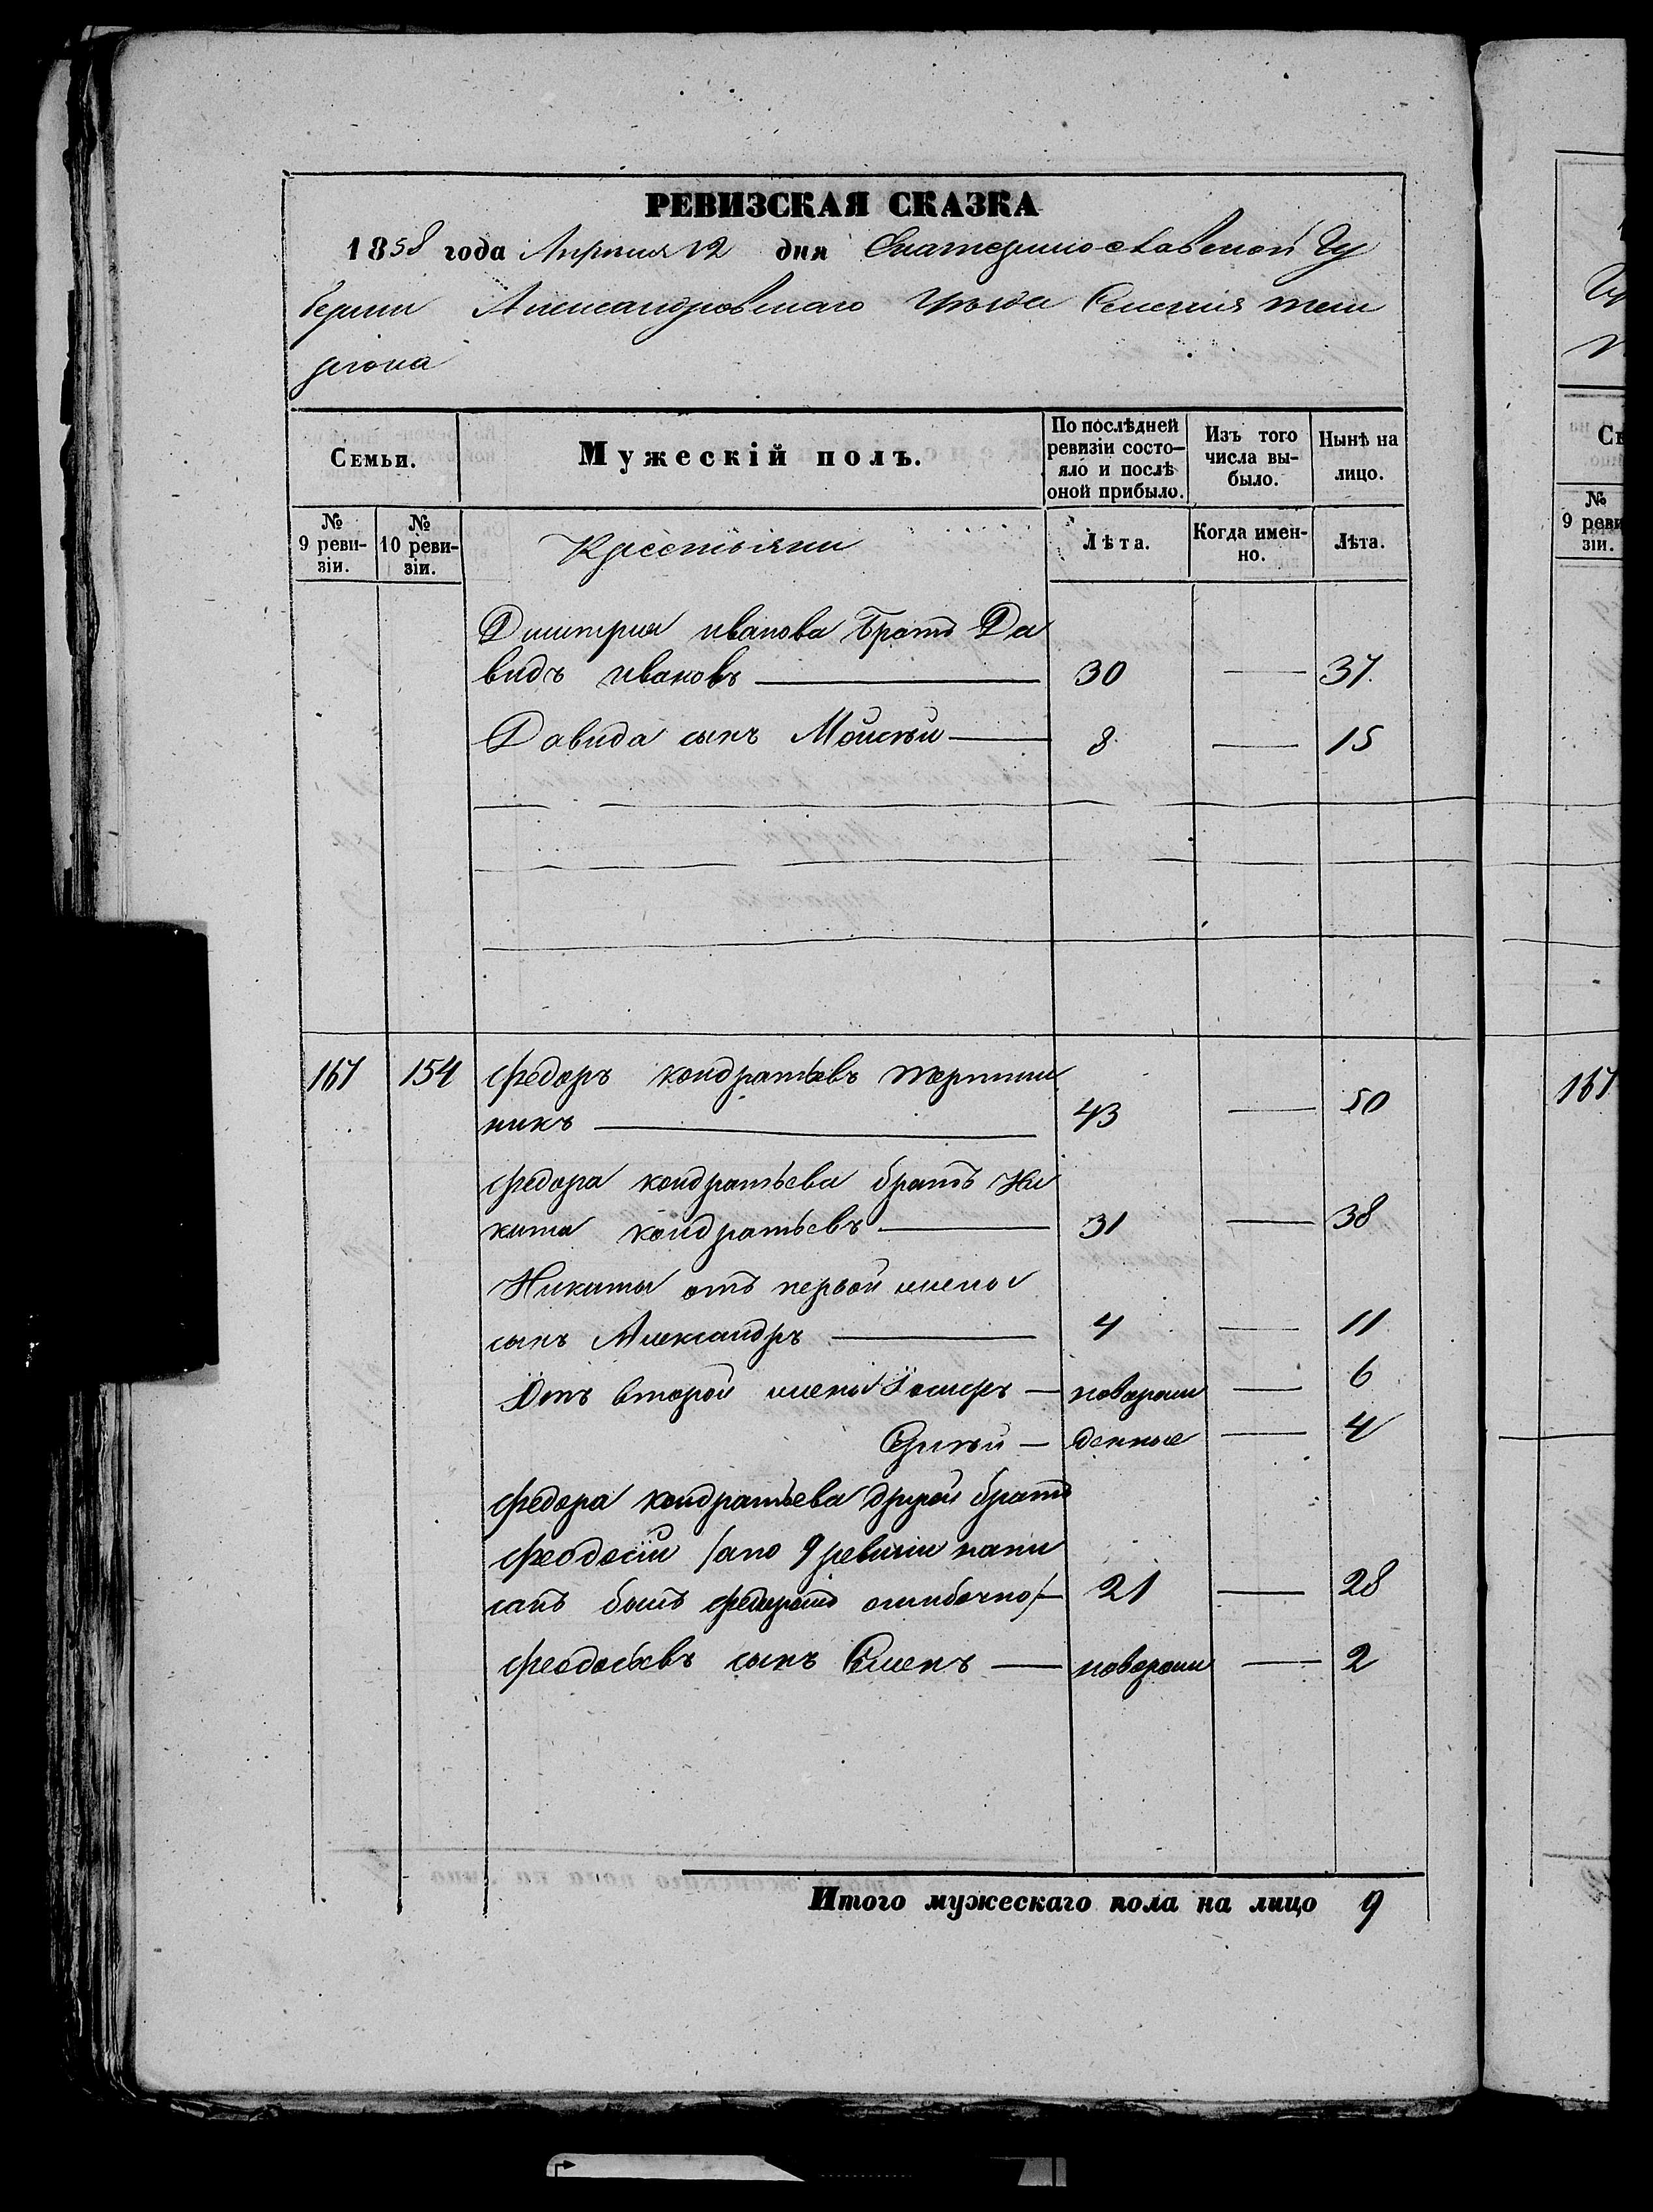 РЕВИЗСКАЯ СКАЗКА
1858 года Апреля 12 дня Екатеринославской Гу
бернии Александровскаго Уѣзда Селенія Тем
рюка
Семьи.
Мужескій полъ.
По послѣдней ревизіи состо-яло и послѣ оной прибыло.
Изъ того числа вы-было.
Нынѣ на лицо.
№ 9 реви-зіи.
№ 10 реви-зіи.
Крестьяни
Лѣта.
Когда имен-но.
Лѣта.
Дмитрия иванова Братъ Да
видъ ивановъ 30 — 37
Давида сынъ Мойсей 8 — 15
167 154 Федоръ кондратьевъ
никъ 43 — 50
Федора кондратьева братъ Ни
кита кондратьевъ 31 — 38
Никиты отъ первой жены
сынъ Александръ 4 — 11
Отъ второй жены Іосифъ — новорож — 6
— денные — 4
Федора кондратьева другой братъ
Феодосій /а по 9 ревизіи напи
санъ былъ ошибочно/ — 21 — 28
Феодосѣевъ сынъ Семенъ — новорож — 2
Итого мужескаго пола на лицо 9
Гу
№ 9 реви зіи.
167